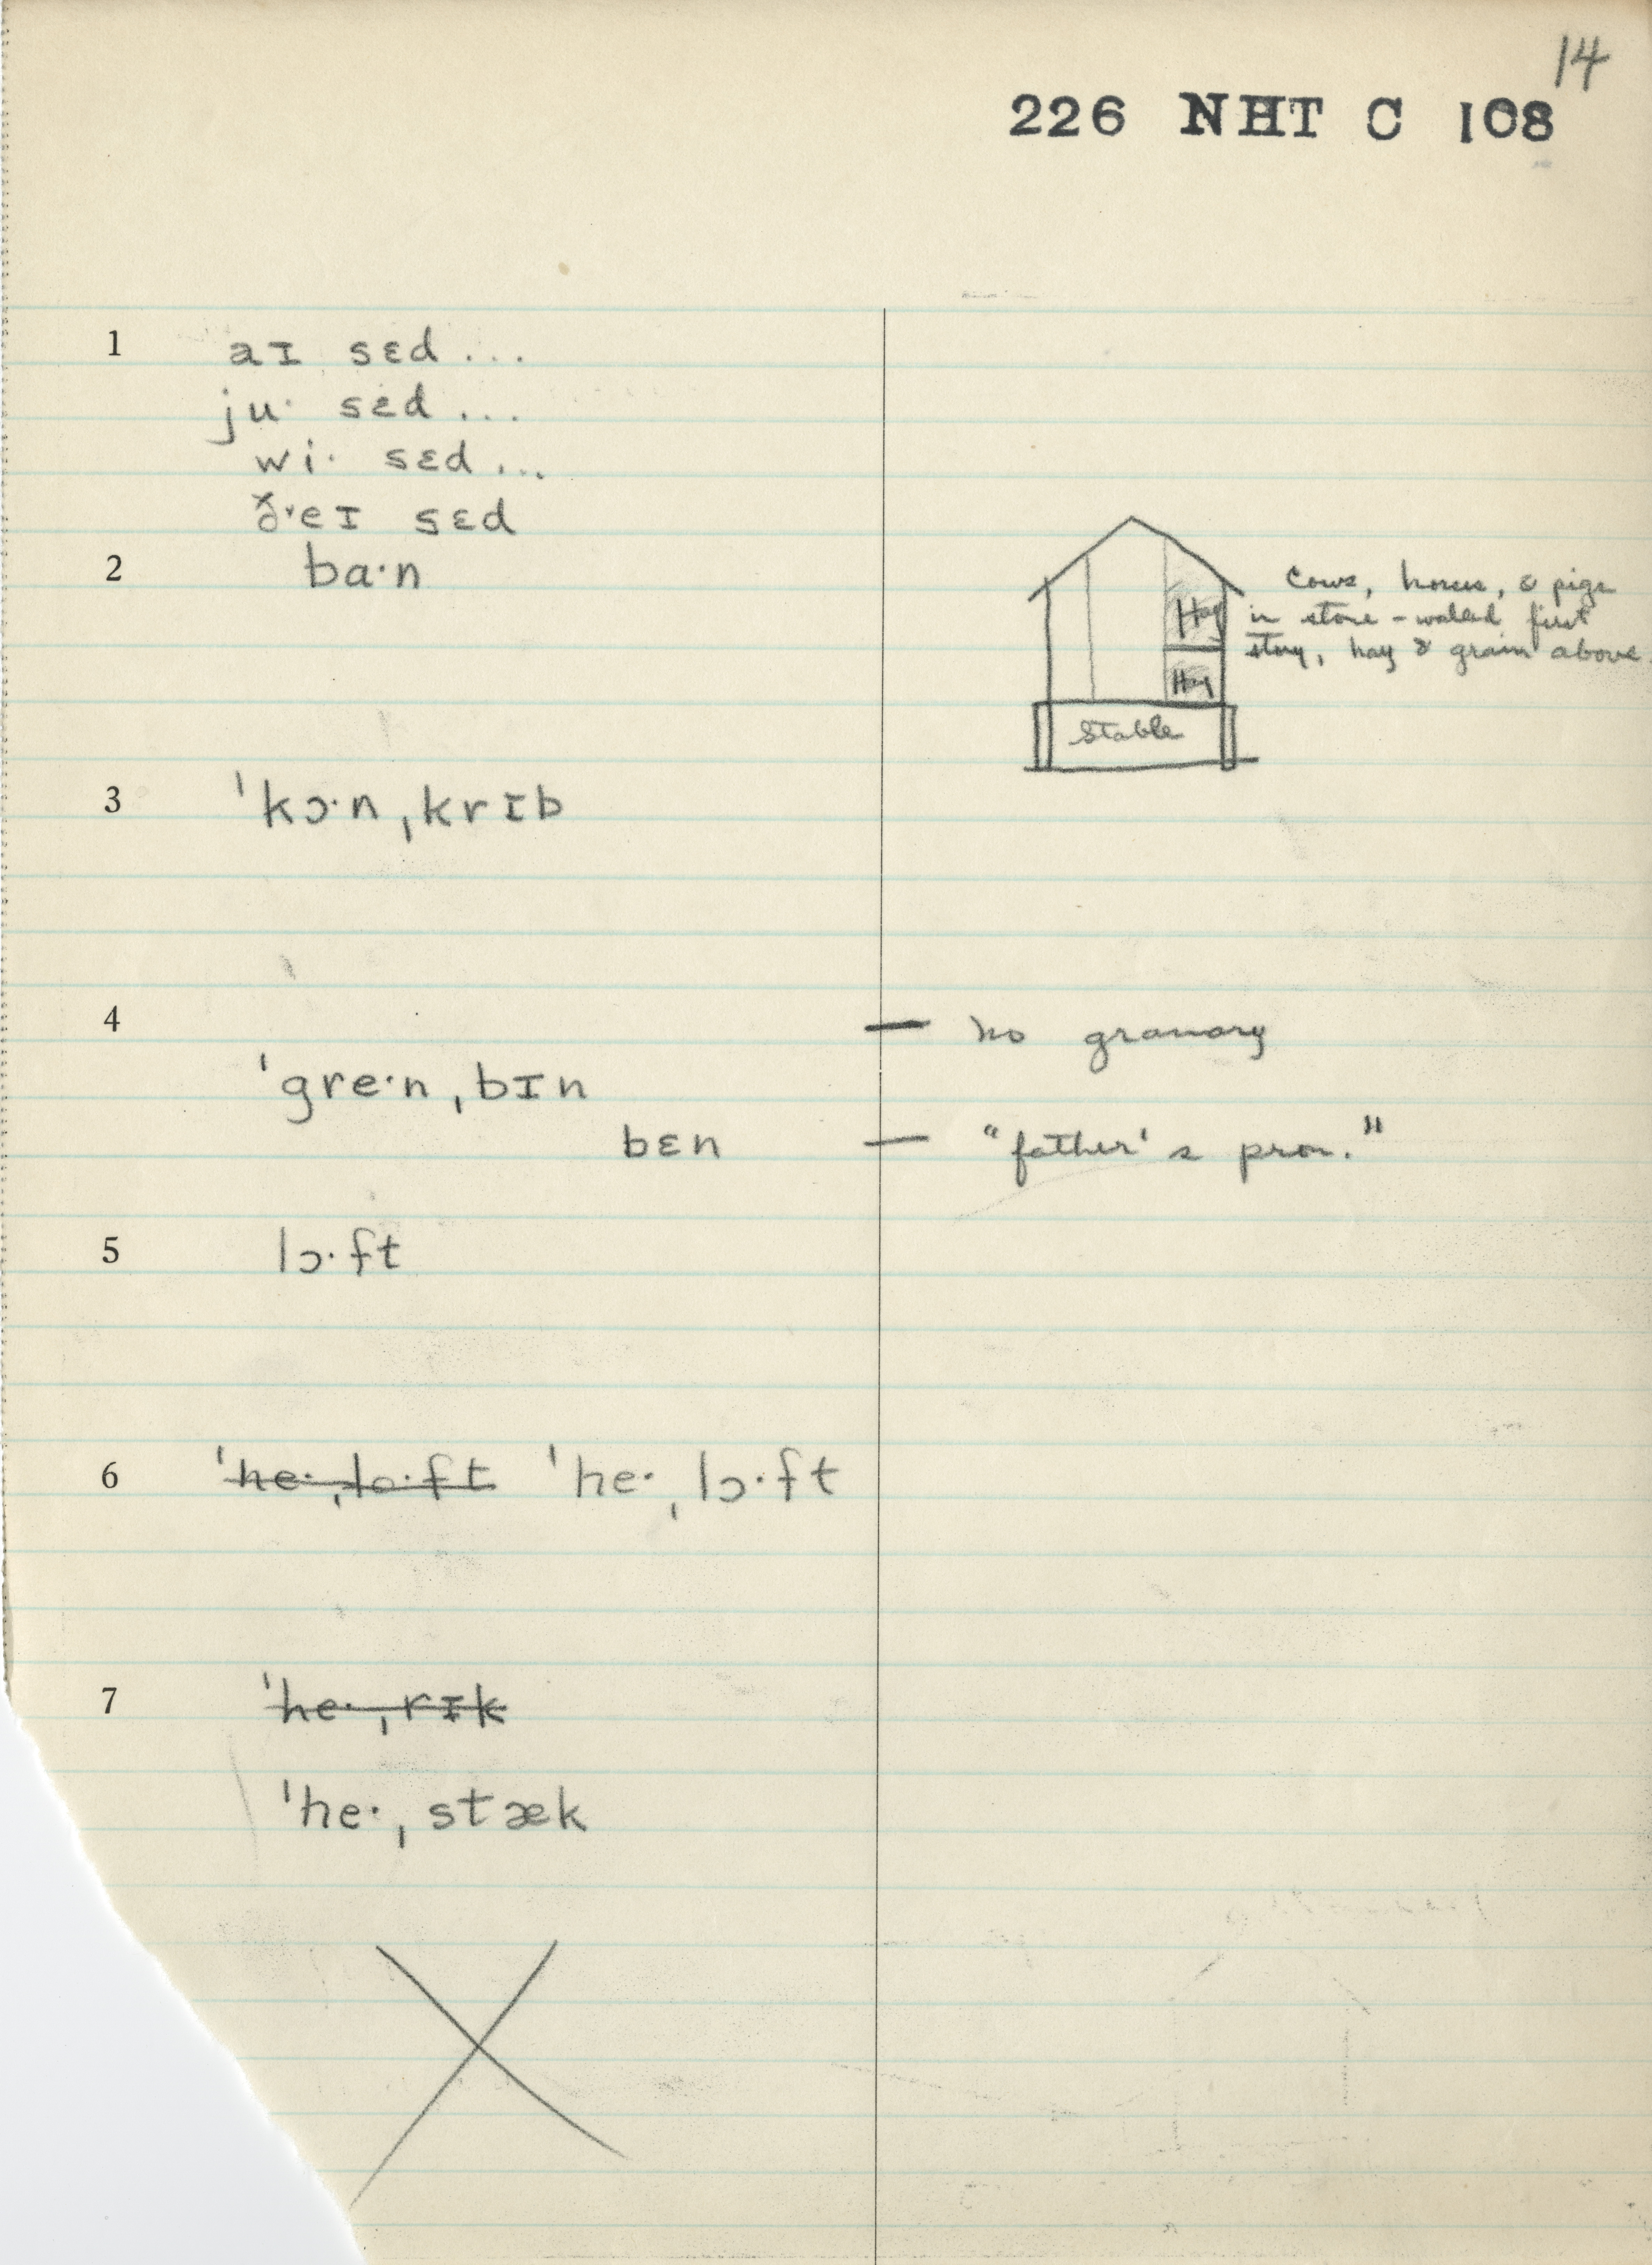 14
226 NHT C 108
1 aɪ sɛd ...
ju· sɛd ...
wi· sɛd ...
ð˅eɪ sɛd
2 ba·n
Cows, horses, & pigs
in stone-walled first
story, hay & grain above.
Hay
Hay
Stable
3 ˈkɔ·nˌkrɪb
4 — no granary
ˈgre·nˌbɪn
bɛn — "father's pron."
5 lɔ·ft
6 ˈhe·ˌlo·ft ˈhe·ˌlɔ·ft
7 ˈhe·ˌrɪk
ˈhe·ˌstæk